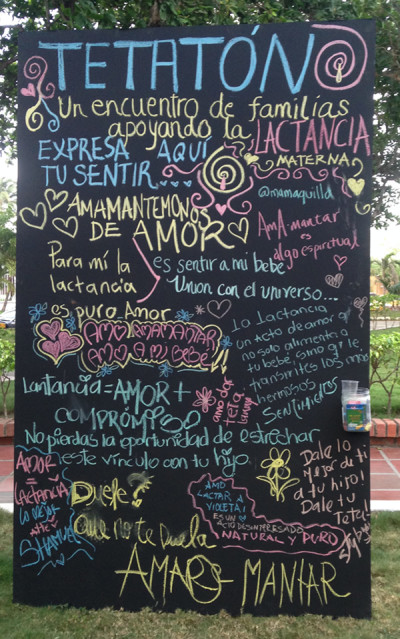 TETATÓN
Un encuentro de familias
apoyando la LACTANCIA
MATERNA
EXPRESA AQUÍ
TU SENTIR...
@mamaquilla
AMAMANTEMONOS
DE AMOR
AmA-mantar
es
algo espiritual
Para mí la
lactancia
es sentir a mi bebé
Union con el universo...
es puro Amor
AMO AMAMANTAR
AMO A MI BEBÉ!!
La Lactancia
un acto de amor q'
no solo alimenta a
tu bebé, sino q' le
transmites los mas
hermosos
SENTIMIENTOS
Lantancia = AMOR +
COMPROMISO
amo dar
teta
No pierdas la oportunidad de estrechar
este vínculo con tu hijo.
AMOR
=
LACTANCIA
Lo mejor
SHAMUEL
Duele?
que no te Duela
AMO
LACTAR A
VIOLETA!
ES UN
ACTO DESINTERESADO
NATURAL Y PURO
Dale lo
Mejor de ti
a tu hijo!
Dale tu
Teta!
AMAR - MANTAR